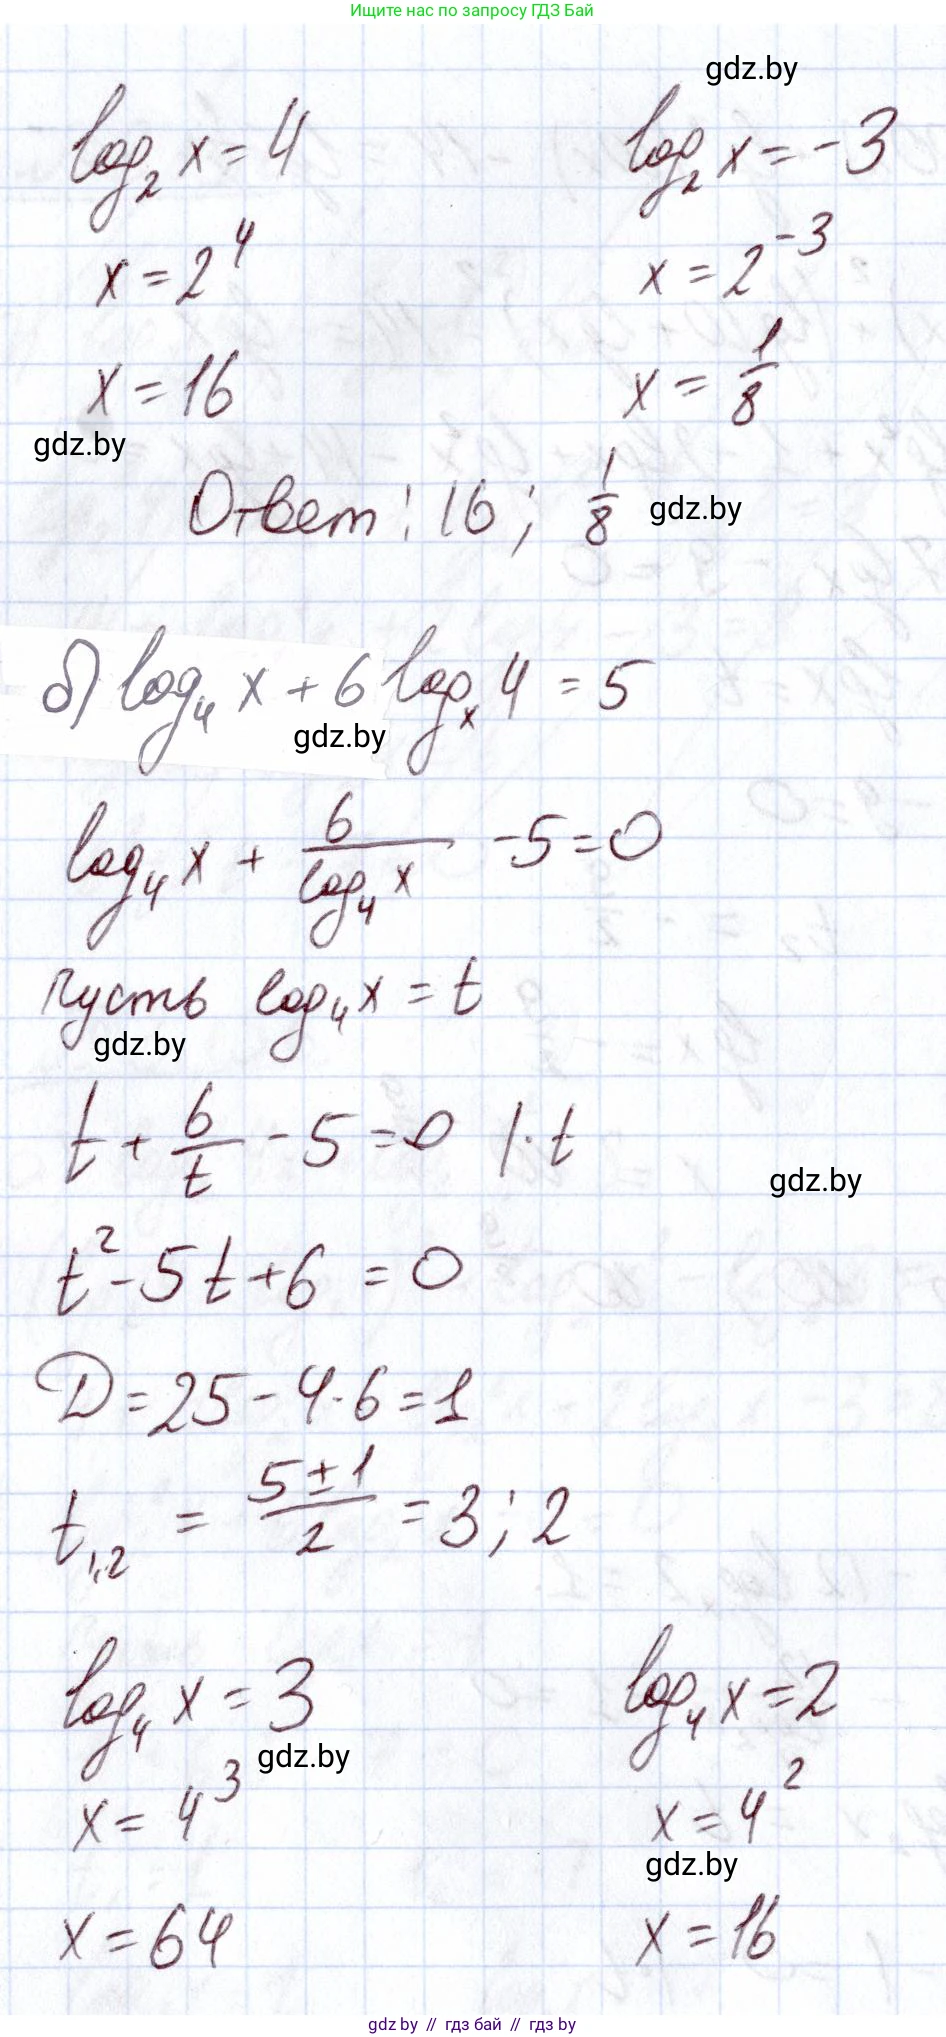 Ищите нас по запросу ГДЗ Бай
gdz.by
log₂ x = 4    log₂ x = -3
x = 2⁴    x = 2⁻³
x = 16    x = 1/8
gdz.by
Ответ: 16; 1/8 gdz.by
б) log₄ x + 6 logₓ 4 = 5
gdz.by
log₄ x + 6/(log₄ x) - 5 = 0
пусть log₄ x = t
gdz.by
t + 6/t - 5 = 0 | · t
gdz.by
t² - 5t + 6 = 0
D = 25 - 4 · 6 = 1
t₁,₂ = (5 ± 1)/2 = 3; 2
log₄ x = 3    log₄ x = 2
gdz.by
x = 4³    x = 4²
gdz.by
x = 64    x = 16
gdz.by // гдз бай // gdz by